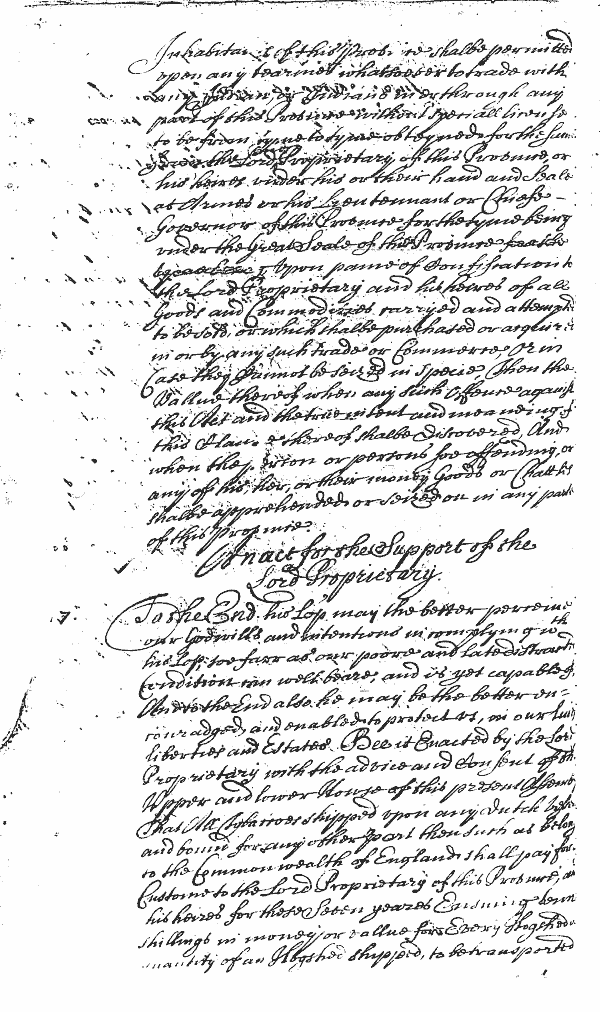 Inhabitants of this Province shalbe permitted
upon any tearmes whatsoever to trade with
any Indian, or Indians in or through any
part of this Province without speciall license
to be from tyme to tyme obteyned for the same
the Lord Proprietary of this Province, or
his heires under his or their hand and Seale
at Armes or his Lieutennant or Chiefe
Governor of this Province for the tyme being
under the Great Seale of this Province
Upon paine of Confiscation to
the Lord Proprietary and his heires of all
Goods and Commodities carryed and attempted
to be sold, or which shalbe purchased or acquired
in or by any such trade or Commerce, Or in
Case they Cannot be seized in Specie, Then the
Vallue thereof when any such Offence against
this Act and the true intent and meaneing of
this Clause thereof shalbe discovered, And
when the person or persons soe offending, or
any of his, her, or their money Goods or Chattles
shalbe apprehended or seized on in any part
of this Province
An act for the Support of the
Lord Proprietary.
7. To the End his Lop. may the better perceive
our Godwills and intentions in complying wth
his Lop: soe farr as our poore and late distracted
Condition can well beare, and is yet capable of
And to the End also he may be the better en=
couradged, and enabled to protect us, in our
liberties and Estates. Bee it Enacted by the Lord
Proprietary with the advice and Consent of the
Upper and lower House of this present Assembly
That All Tobaccoes shipped upon any Dutch
and bound for any other Port then such as belong
to the Common wealth of England shall pay for
Custome to the Lord Proprietary of this Province, and
his heires for these Seven yeares Ensuing tenn
shillings in money or vallue for Every Hogshed or
quantity of an Hogshed shipped, to be transported